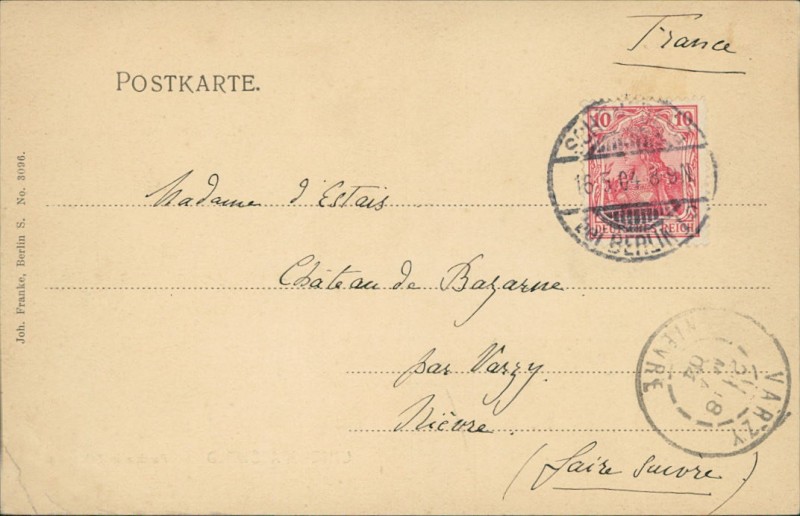 France
POSTKARTE.
10 10
16.5.04. 8-9N
BERLIN
DEUTSCHES REICH
Madame d'Estais
Château de Bazarne
par Varzy.
Nièvre.
(faire suivre)
VARZY
NIÈVRE
18
04
Joh. Franke, Berlin S. No. 3096.